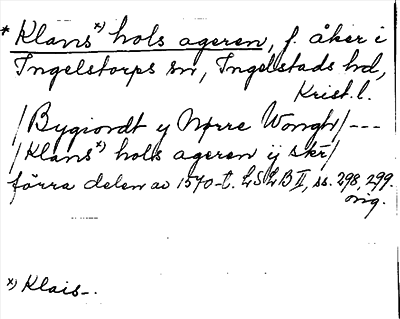 * Klans x) hols ageren, f. åker i
Ingelstorps sn, Ingelstads hd,
Krist. l.
/Bygiordt y Nørre Wongh/---
/Klans x) hols ageren ij skr/
förra delen av 1570-t. LSLB II, ss. 298, 299.
orig.
x) Klais-.